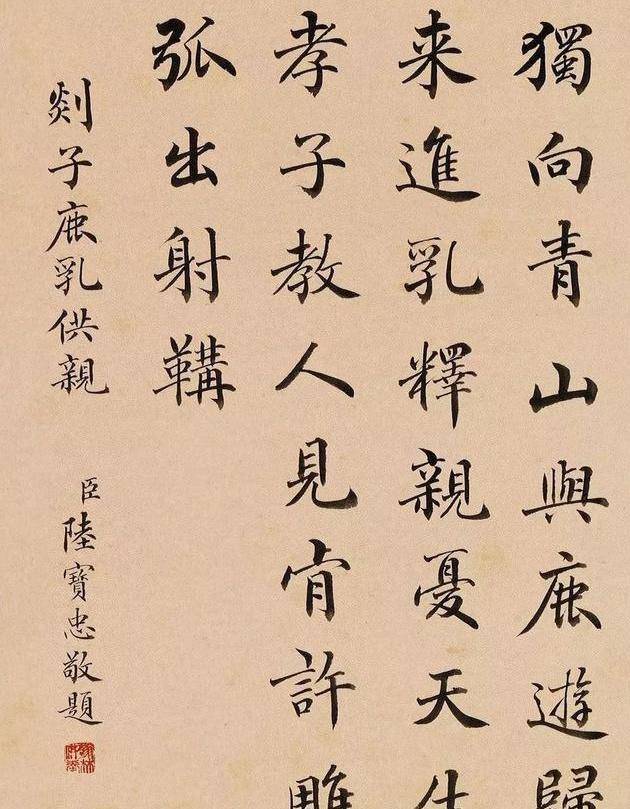 獨向青山與鹿遊歸
来進乳釋親憂天
孝子教人見肯許雕
弧出射鞲
剡子鹿乳供親
臣陸寶忠敬題